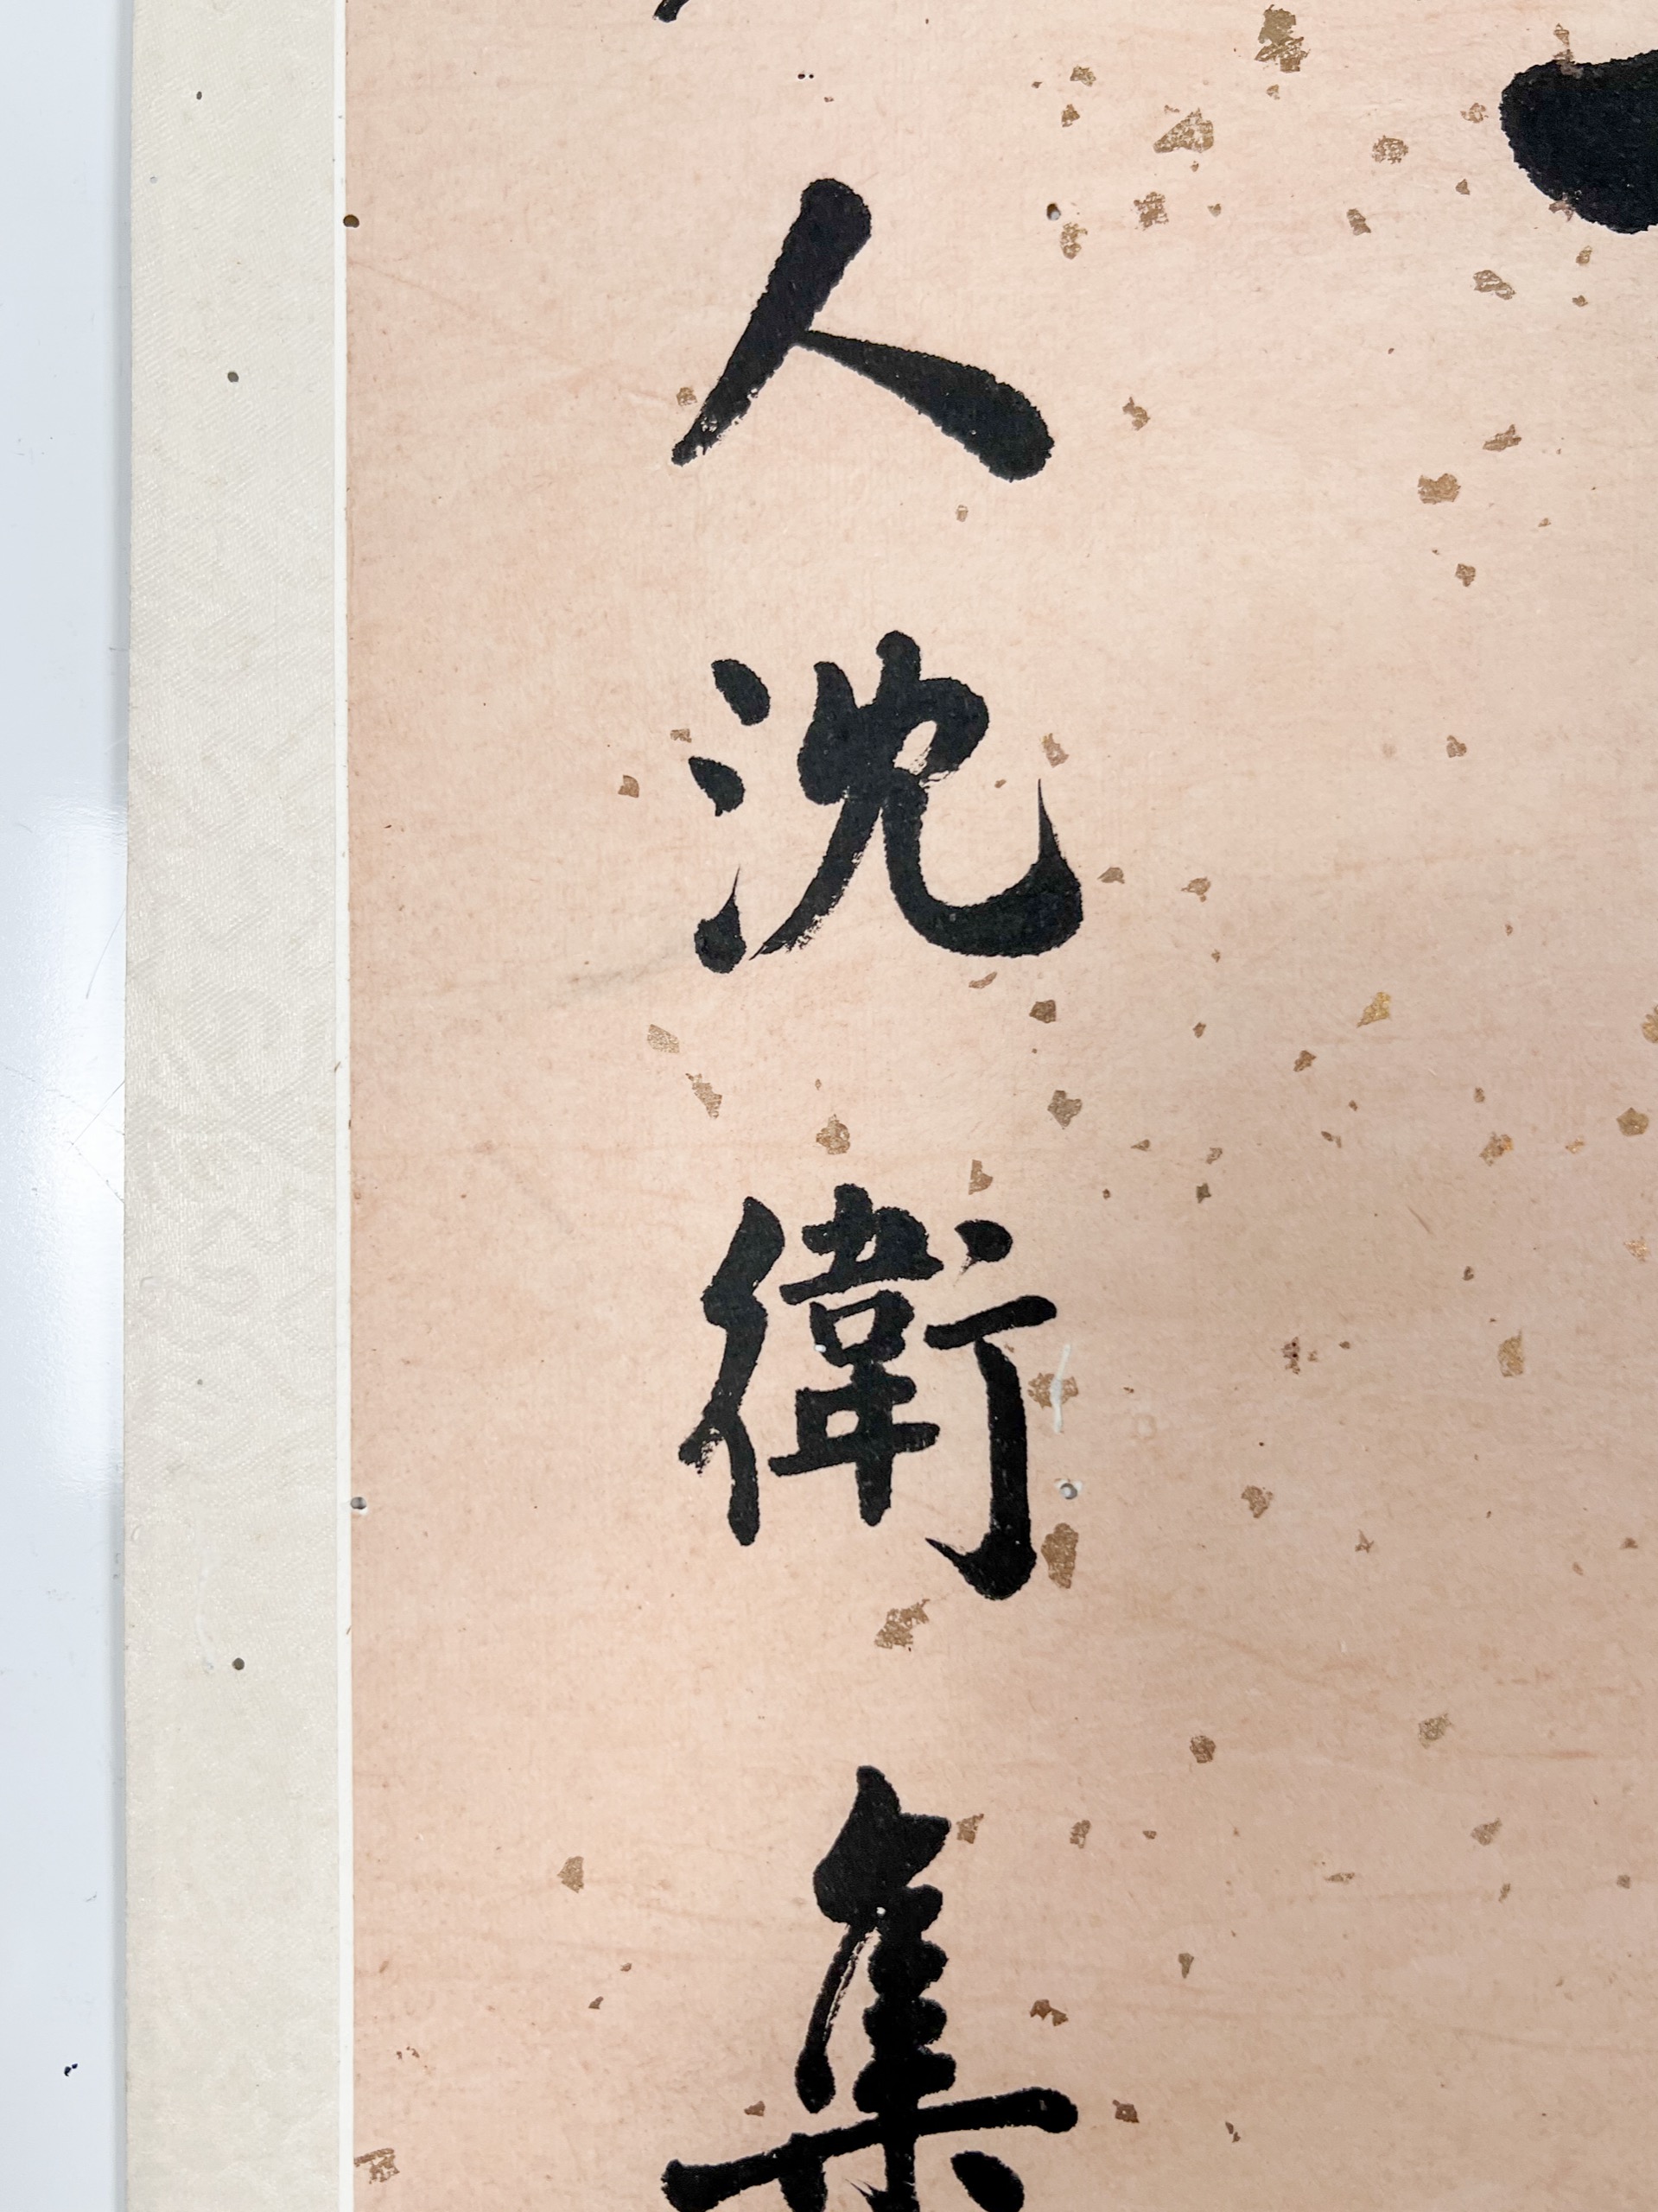 人沈衛集